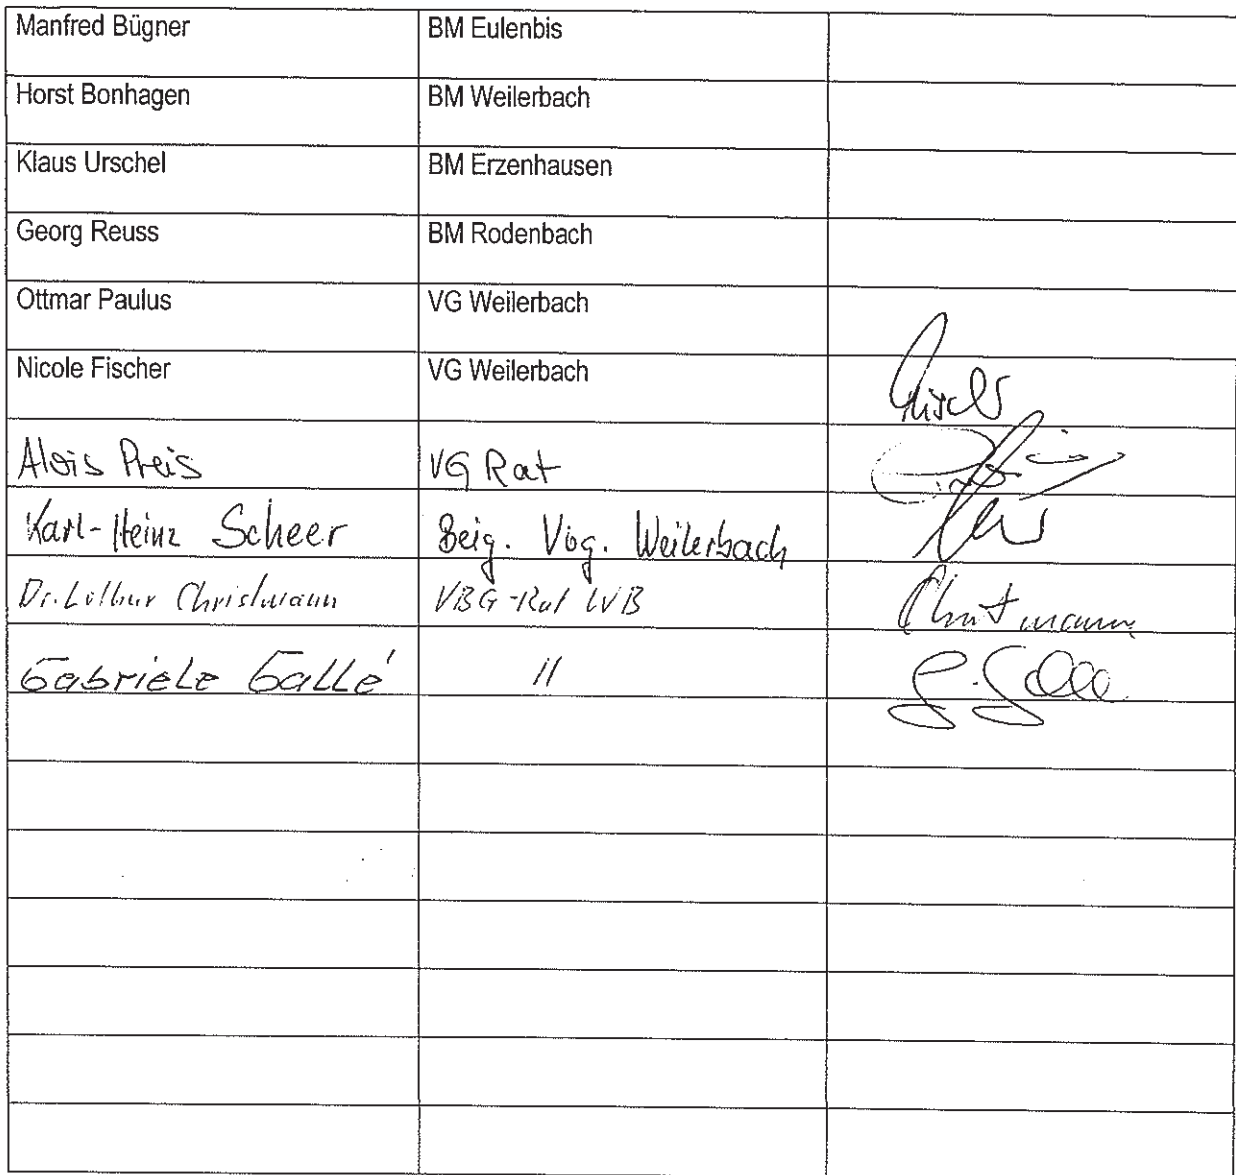 Manfred Bügner BM Eulenbis
Horst Bonhagen BM Weilerbach
Klaus Urschel BM Erzenhausen
Georg Reuss BM Rodenbach
Ottmar Paulus VG Weilerbach
Nicole Fischer VG Weilerbach
Alois Preis VG Rat
Karl-Heinz Scheer Beig. Vbg. Weilerbach
Dr. Lothar Christmann VBG-Rat WB Christmann
Gabriele Gallé " G. Galle